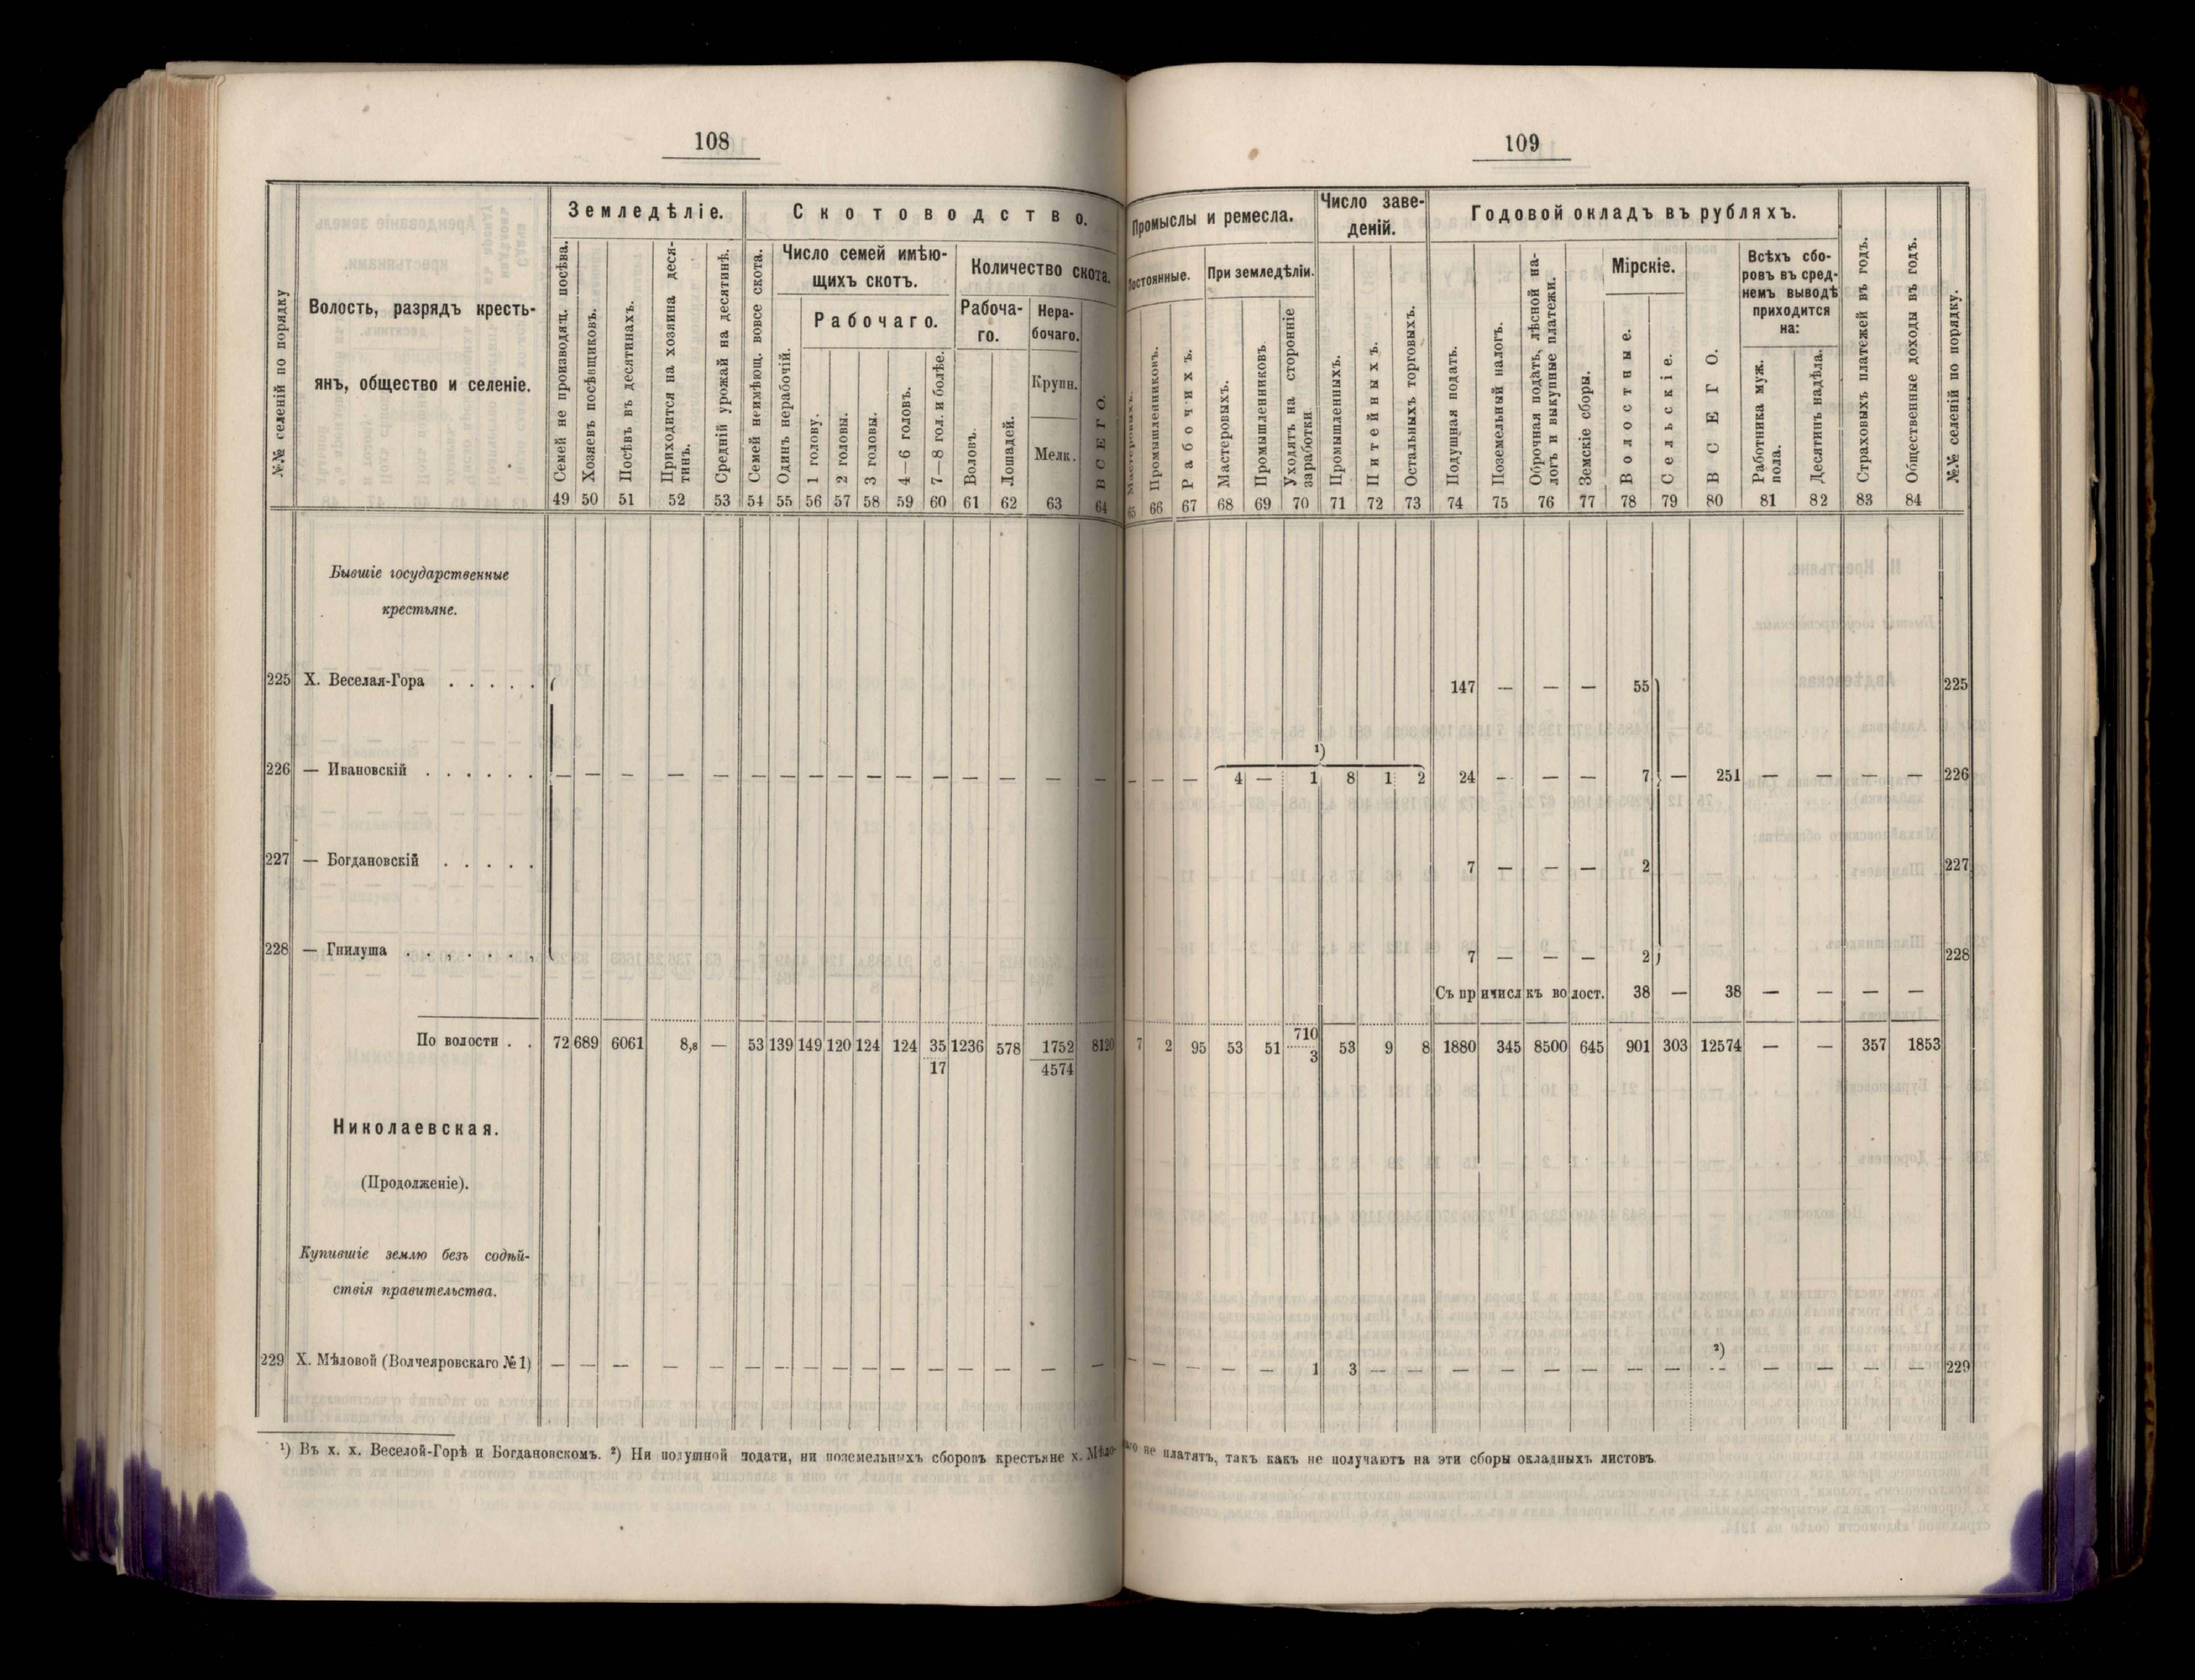 108
№№ селеній по порядку
Волость, разрядъ кресть-
янъ, общество и селеніе.
Земледѣліе.
Семей не производящ. посѣва.
Хозяевъ посѣвщиковъ.
Посѣвъ въ десятинахъ.
Приходится на хозяина деся-
тинъ.
Средній урожай на десятинѣ.
Скотоводство.
Семей неимѣющ. вовсе скота.
Число семей имѣю-
щихъ скотъ.
Одинъ нерабочій.
Рабочаго.
1 голову.
2 головы.
3 головы.
4—6 головъ.
7—8 гол. и болѣе.
Количество скота.
Рабоча-
го.
Воловъ.
Лошадей.
Нера-
бочаго.
Крупн.
Мелк.
ВСЕГО.
49 50 51 52 53 54 55 56 57 58 59 60 61 62 63 64
Бывшіе государственные
крестьяне.
225 Х. Веселая-Гора . . . . .
226 — Ивановскій . . . . . . — — — — — — — — — — — — — — — —
227 — Богдановскій . . . . .
228 — Гнилуша . . . . . . .
По волости . . 72 689 6061 8,8 — 53 139 149 120 124 124 35 1236 578 1752 8120
17 4574
Николаевская.
(Продолженіе).
Купившіе землю безъ содѣй-
ствія правительства.
229 Х. Мѣловой (Волчеяровскаго №1) — — — — — — — — — — — — — — — —
109
Промыслы и ремесла.
Постоянные.
Мастеровыхъ.
Промышленниковъ.
Рабочихъ.
При земледѣліи.
Мастеровыхъ.
Промышленниковъ.
Уходятъ на сторонніе
заработки
Число заве-
деній.
Промышленныхъ.
Питейныхъ.
Остальныхъ торговыхъ.
Годовой окладъ въ рубляхъ.
Подушная подать.
Поземельный налогъ.
Оброчная подать, лѣсной на-
логъ и выкупные платежи.
Земскіе сборы.
Мірскіе.
Волостные.
Сельскіе.
ВСЕГО.
Всѣхъ сбо-
ровъ въ сред-
немъ выводѣ
приходится
на:
Работника муж.
пола.
Десятинъ надѣла.
Страховыхъ платежей въ годъ.
Общественные доходы въ годъ.
№№ селеній по порядку.
65 66 67 68 69 70 71 72 73 74 75 76 77 78 79 80 81 82 83 84
147 — — — 55 225
¹)
— — — 4 — 1 8 1 2 24 — — — 7 — 251 — — — — 226
7 — — — 2 227
7 — — — 2 228
Съ причисл къ волост. 38 — 38 — — — —
710
7 2 95 53 51 3 53 9 8 1880 345 8500 645 901 303 12574 — — 357 1853
²)
— — — — — 1 3 — — — — — — — — — — — — — 229
¹) Въ х. х. Веселой-Горѣ и Богдановскомъ. ²) Ни подушной подати, ни поземельныхъ сборовъ крестьяне х. Мѣло-
ваго не платятъ, такъ какъ не получаютъ на эти сборы окладныхъ листовъ.